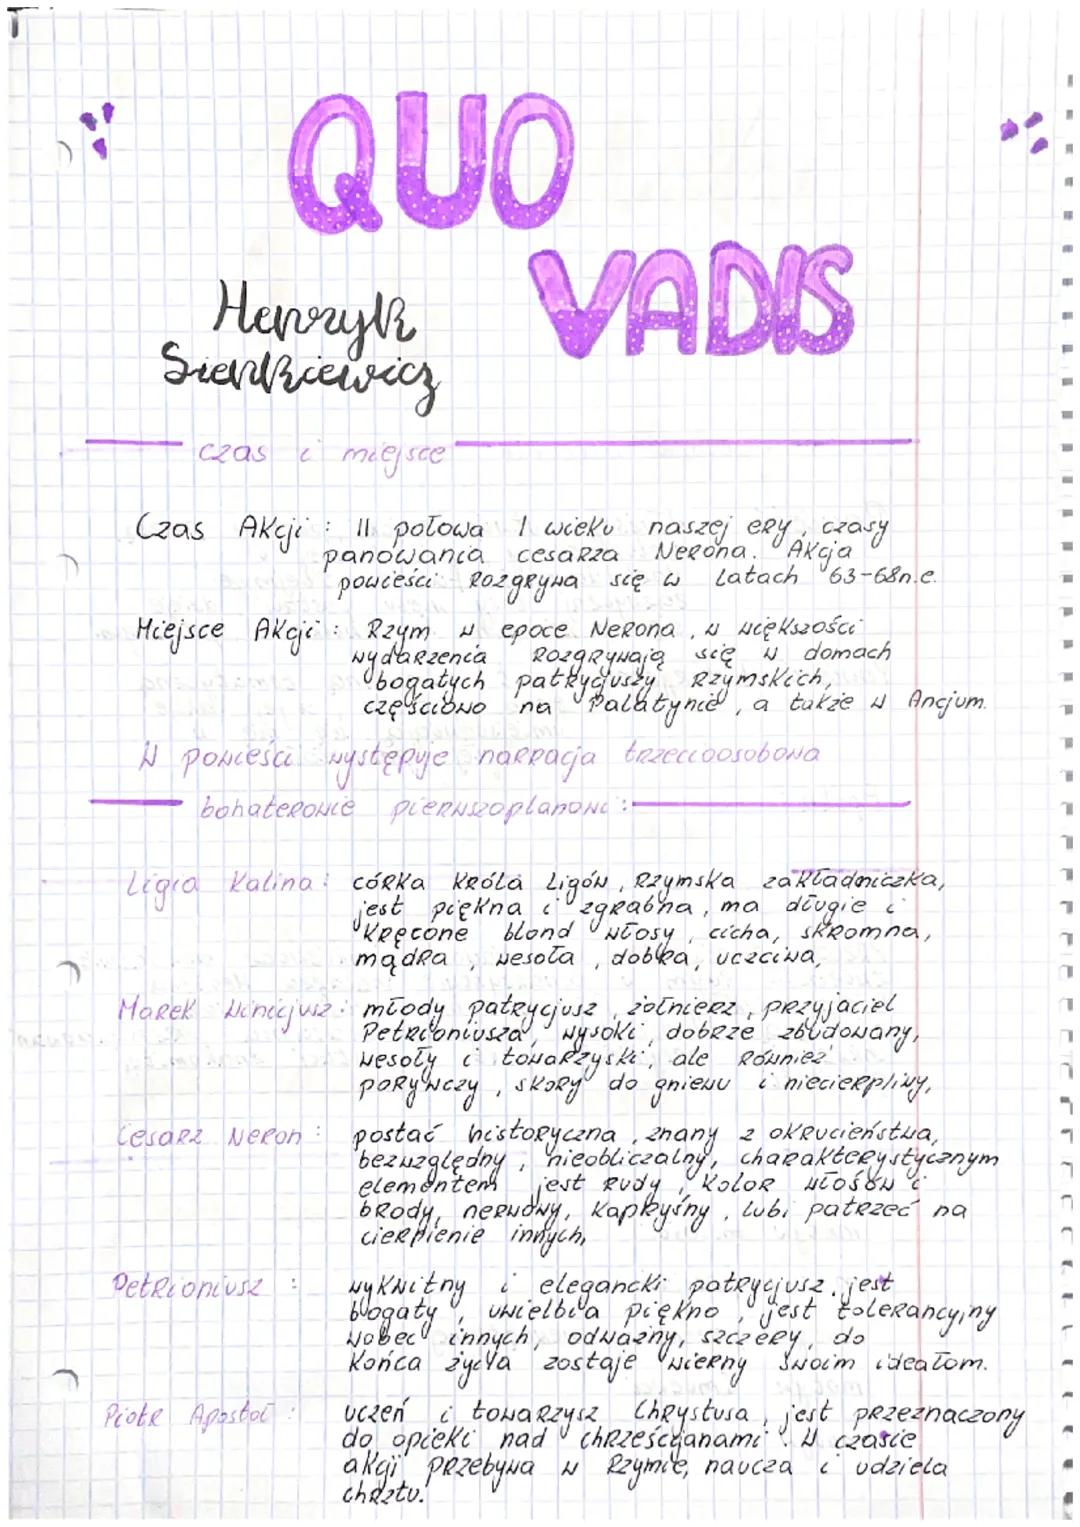 QUO
VADIS
Henryk
Sienkiewicz
czas i miejsce
Czas Akcji : II połowa I wieku naszej ery, czasy
panowania cesarza Nerona. Akcja
powieści rozgrywa się w latach 63-68n.e.
Miejsce Akcji : Rzym w epoce Nerona, w większości
wydarzenia rozgrywają się w domach
bogatych patrycjuszy rzymskich,
częściowo na Palatynie, a także w Ancjum.
W powieści występuje narracja trzecioosobowa
bohaterowie pierwszoplanowi :
Ligia Kalina : córka króla Ligów, rzymska zakładniczka,
jest piękna i zgrabna, ma długie i
kręcone blond włosy, cicha, skromna,
mądra, wesoła, dobra, uczciwa,
Marek Winicjusz : młody patrycjusz, żołnierz, przyjaciel
Petrioniusza, wysoki, dobrze zbudowany,
wesoły i towarzyski, ale również
porywczy, skory do gniewu i niecierpliwy,
Cesarz Neron : postać historyczna, znany z okrucieństwa,
bezwzględny, nieobliczalny, charakterystycznym
elementem jest rudy, kolor włosów i
brody, nerwowy, kapryśny, lubi patrzeć na
cierpienie innych,
Petrioniusz : wykwitny i elegancki patrycjusz, jest
bogaty, uwielbia piękno, jest tolerancyjny
wobec innych, odważny, szczery, do
końca życia zostaje wierny swoim ideałom.
Piotr Apostoł : uczeń i towarzysz Chrystusa, jest przeznaczony
do opieki nad chrześcijanami. W czasie
akcji przebywa w Rzymie, naucza i udziela
chrztu.